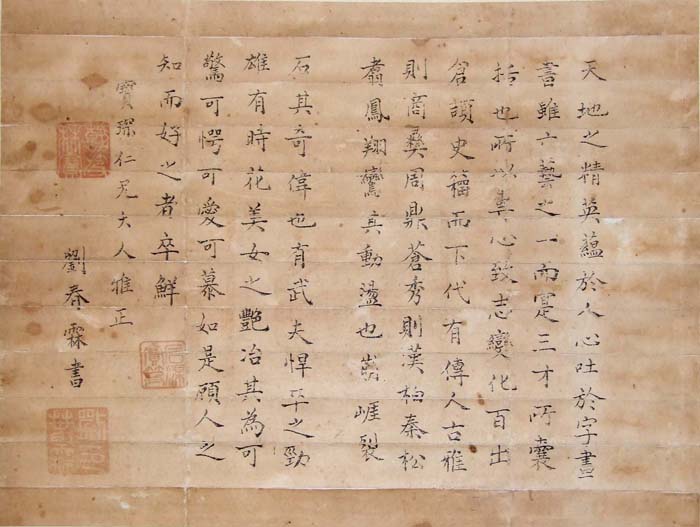 天地之精英蘊於人心吐於字畫
書雖六藝之一而寔三才所囊
括也所以心致志變化百出
倉頡史籀而下代有傳人古雅
則商彝周鼎蒼秀則漢柏秦松
翥鳳翔鸞真動盪也崩崕裂
石其奇偉也有武夫悍卒之勁
雄有時花美女之艷冶其為可
驚可愕可愛可慕如是顧人之
知而好之者卒鮮
寶琛仁兄大人雅正
劉春霖書